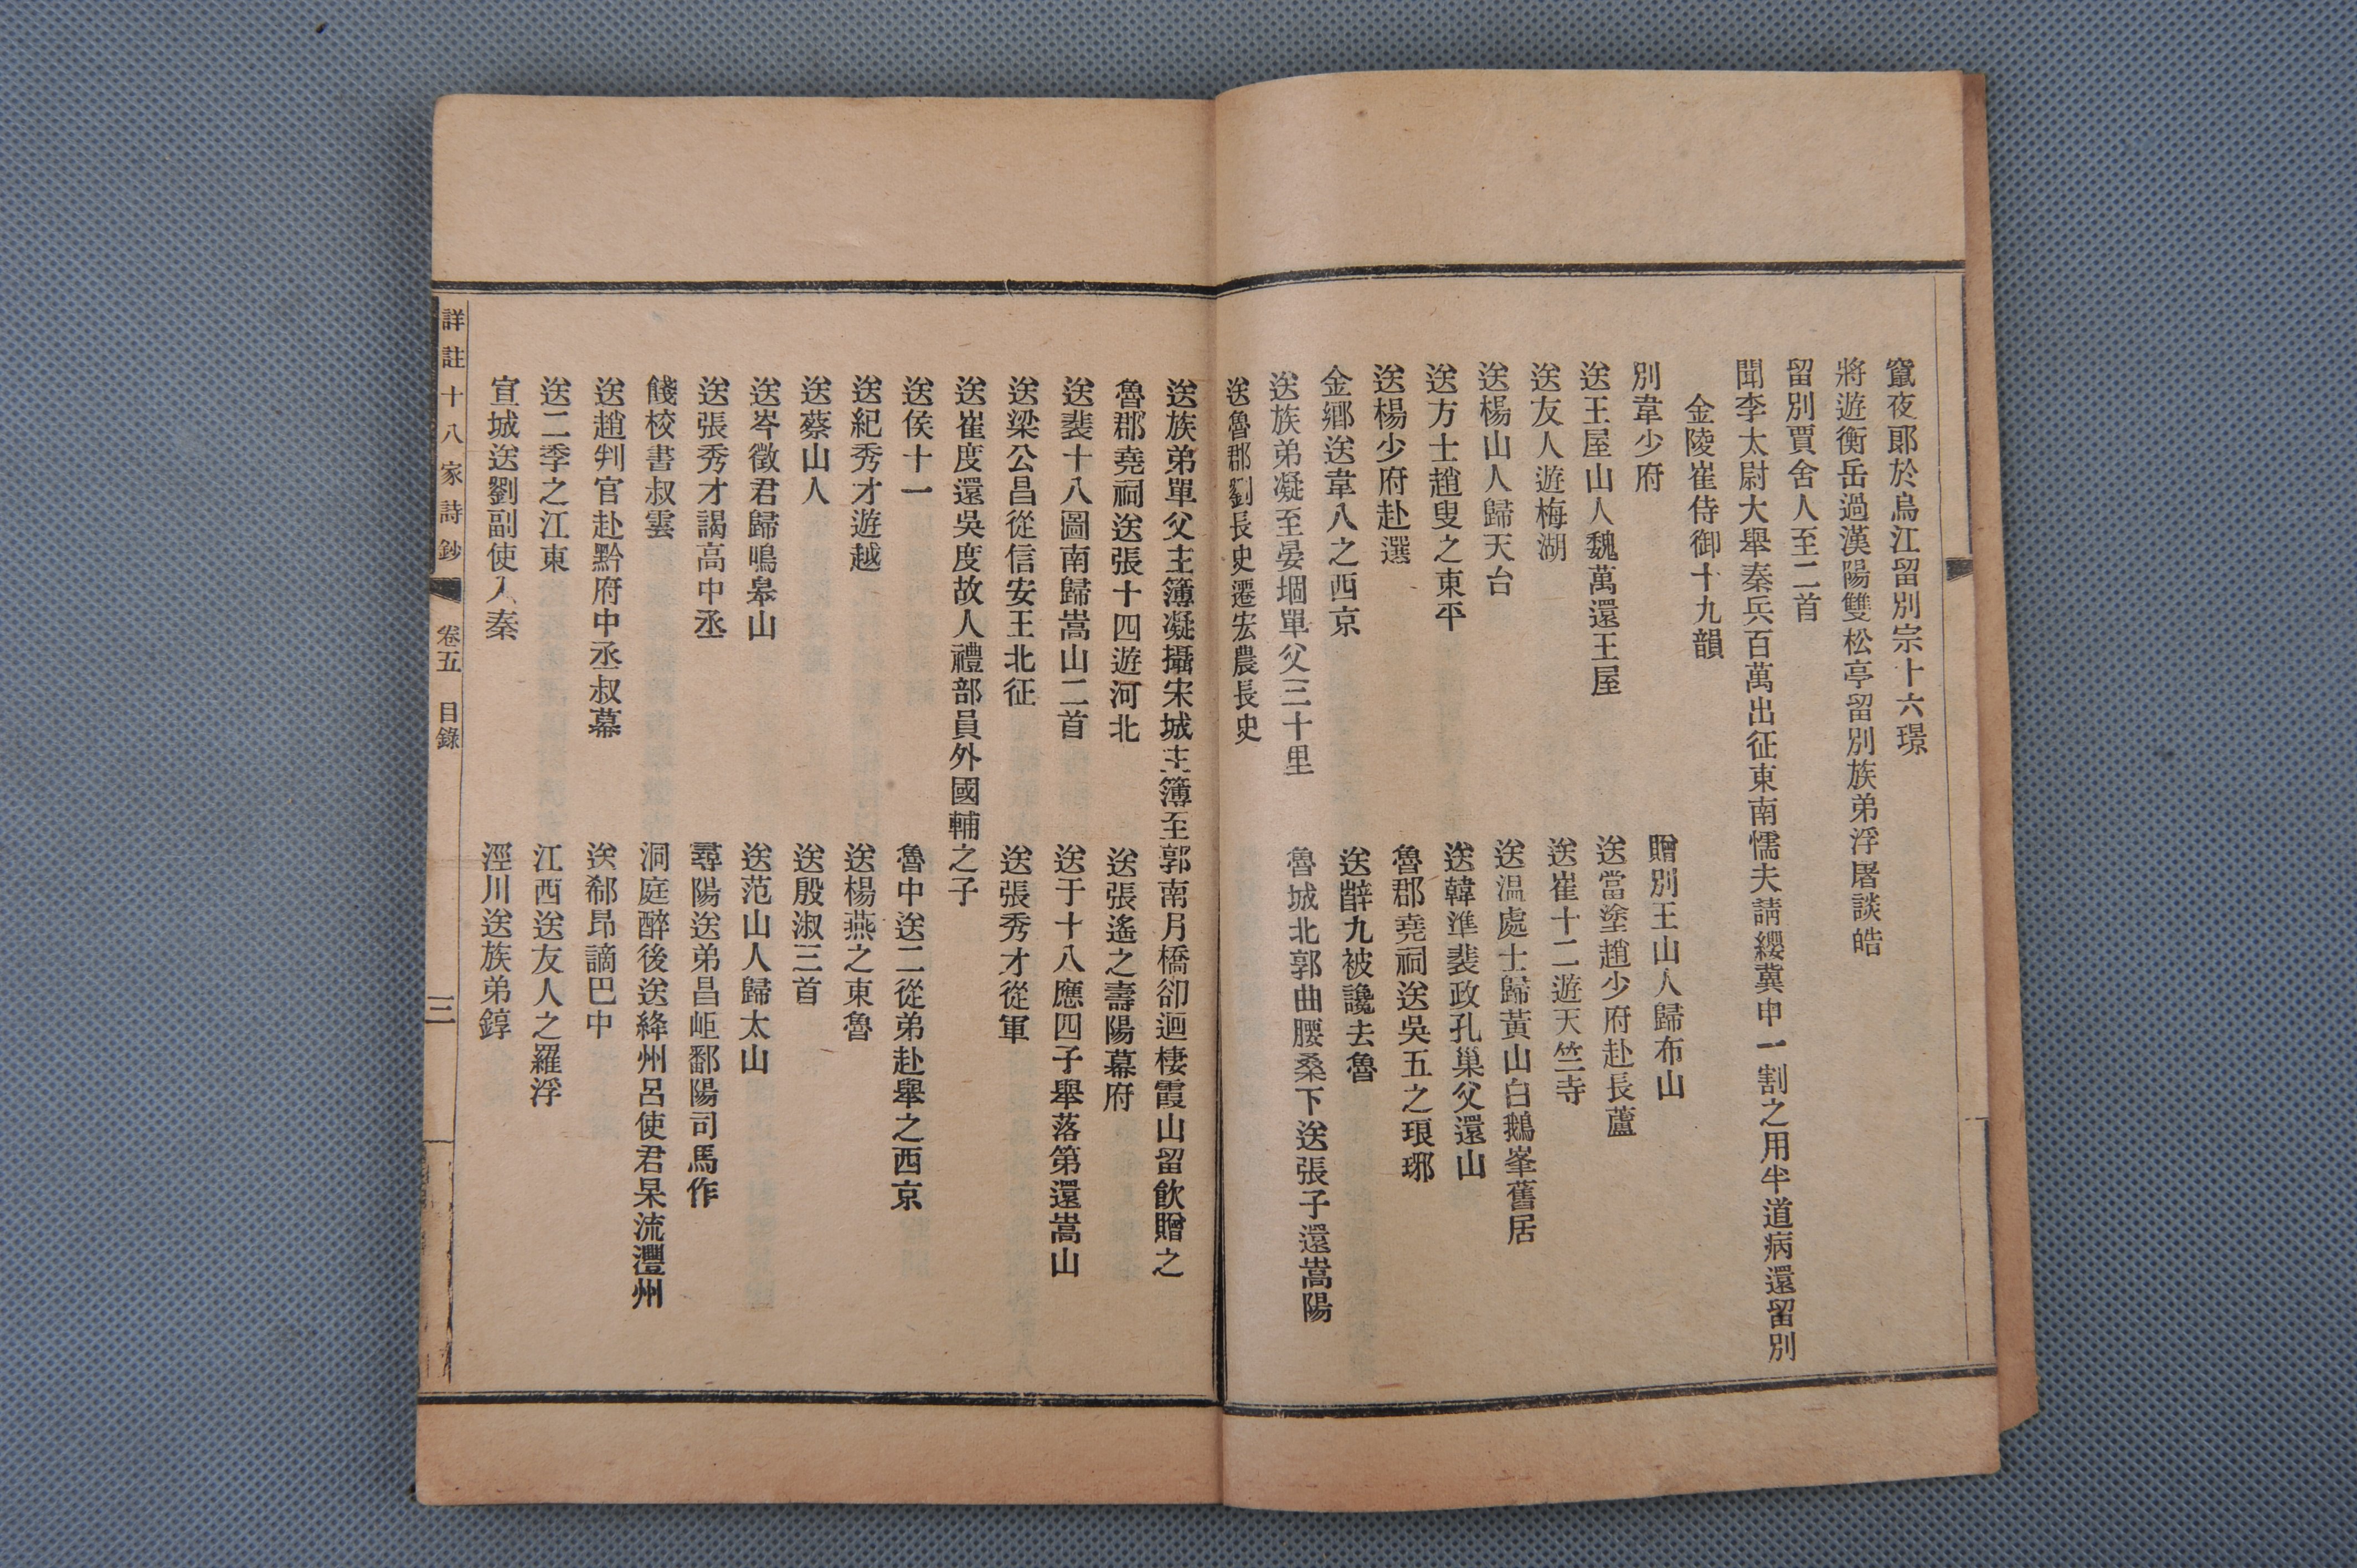 竄夜郞於烏江留別宗十六璟
將遊衡岳過漢陽雙松亭留別族弟浮屠談皓
留別賈舍人至二首
聞李太尉大舉秦兵百萬出征東南懦夫請纓冀申一割之用半道病還留別
金陵崔侍御十九韻
別韋少府
贈別王山人歸布山
送王屋山人魏萬還王屋
送當塗趙少府赴長蘆
送友人遊梅湖
送崔十二遊天竺寺
送楊山人歸天台
送温處士歸黃山白鵝峯舊居
送方士趙叟之東平
送韓準裴政孔巢父還山
送楊少府赴選
魯郡堯祠送吳五之琅琊
金鄉送韋八之西京
送薛九被讒去魯
送族弟凝至晏堌單父三十里
魯城北郭曲腰桑下送張子還嵩陽
送魯郡劉長史遷宏農長史
送族弟單父主簿凝攝宋城主簿至郭南月橋卻迴棲霞山留飲贈之
魯郡堯祠送張十四遊河北
送張遙之壽陽幕府
送裴十八圖南歸嵩山二首
送于十八應四子舉落第還嵩山
送梁公昌從信安王北征
送張秀才從軍
送崔度還吳度故人禮部員外國輔之子
送侯十一
魯中送二從弟赴舉之西京
送紀秀才遊越
送楊燕之東魯
送蔡山人
送殷淑三首
送岑徵君歸鳴皋山
送范山人歸太山
送張秀才謁高中丞
尋陽送弟昌岠鄱陽司馬作
餞校書叔雲
洞庭醉後送絳州呂使君杲流灃州
送趙判官赴黔府中丞叔幕
送郗昂謫巴中
送二季之江東
江西送友人之羅浮
宣城送劉副使入秦
涇川送族弟錞
詳註十八家詩鈔 卷五 目錄 三